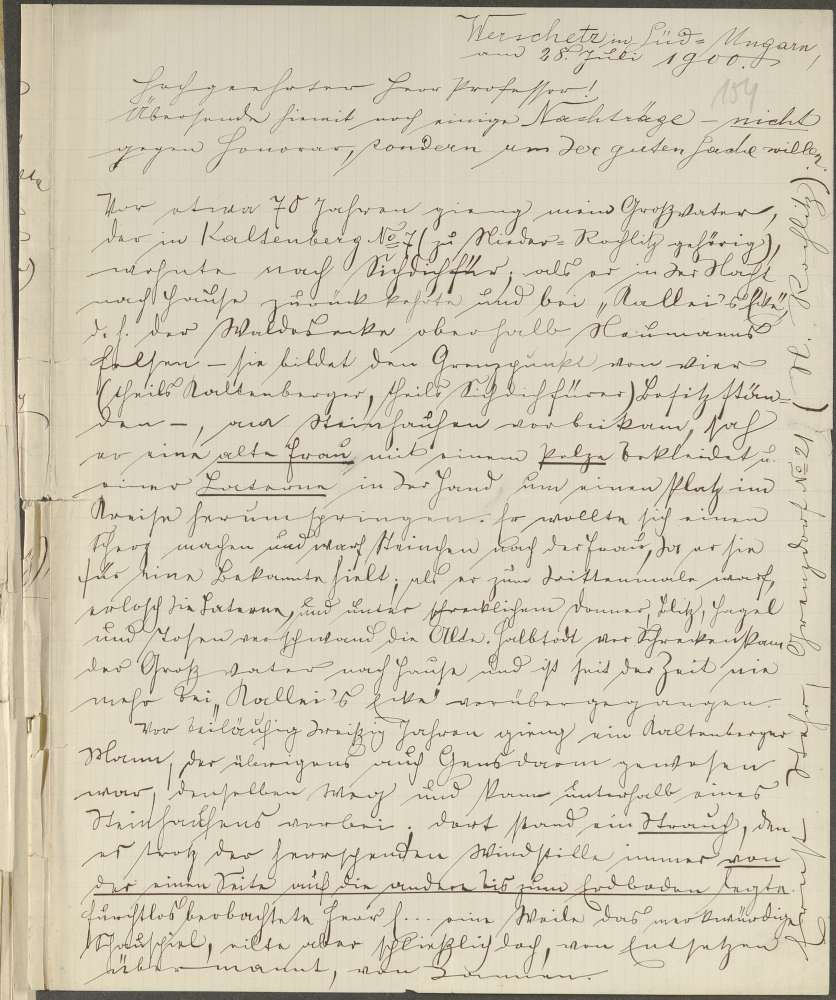 Werschetz in Süd-Ungarn,
am 28. Juli 1900.
154
Hochgeehrter Herr Professor!
Übersende hiemit noch einige Nachträge – nicht
gegen Honorar, sondern um der guten Sache willen.
Vor etwa 70 Jahren gieng mein Großvater,
der in Kaltenberg No 7 (zu Nieder-Rochlitz gehörig),
wohnte nach Sichdichfür; als er in der Nacht
nach Hause zurückkehrte und bei „Kallei's Ecke",
d. h. der Waldesecke oberhalb Neumanns
Felsen – sie bildet den Grenzpunkt von vier
(theils Kaltenberger, theils Sichdichfürer) Besitzstän-
den –, am Steinhaufen vorbeikam, sah
er eine alte Frau mit einem Pelze bekleidet u.
einer Laterne in der Hand um einen Platz im
Kreise herumspringen. Er wollte sich einen
Scherz machen und warf Steinchen nach der Frau, da er sie
für eine Bekannte hielt; als er zum drittenmale warf,
erlosch die Laterne, und unter schrecklichem Donner, Blitz, Hagel
und Tosen verschwand die Alte. Halbtodt vor Schrecken kam
der Großvater nach Hause und ist seit der Zeit nie
mehr bei „Kallei's Ecke" vorübergegangen.
Vor beiläufig dreißig Jahren gieng ein Kaltenberger
Mann, der übrigens auch Gensdarm gewesen
war, denselben Weg und kam unterhalb eines
Steinhaufens vorbei; dort stand ein Strauch, den
es trotz der herrschenden Windstille immer von
der einen Seite auf die andere bis zum Erdboden legte.
Furchtlos beobachtete Herr H... eine Weile das merkwürdige
Schauspiel, eilte aber schließlich doch, von Entsetzen
übermannt, von dannen.
Grenzdorf No 21 (N. Rochlitz)